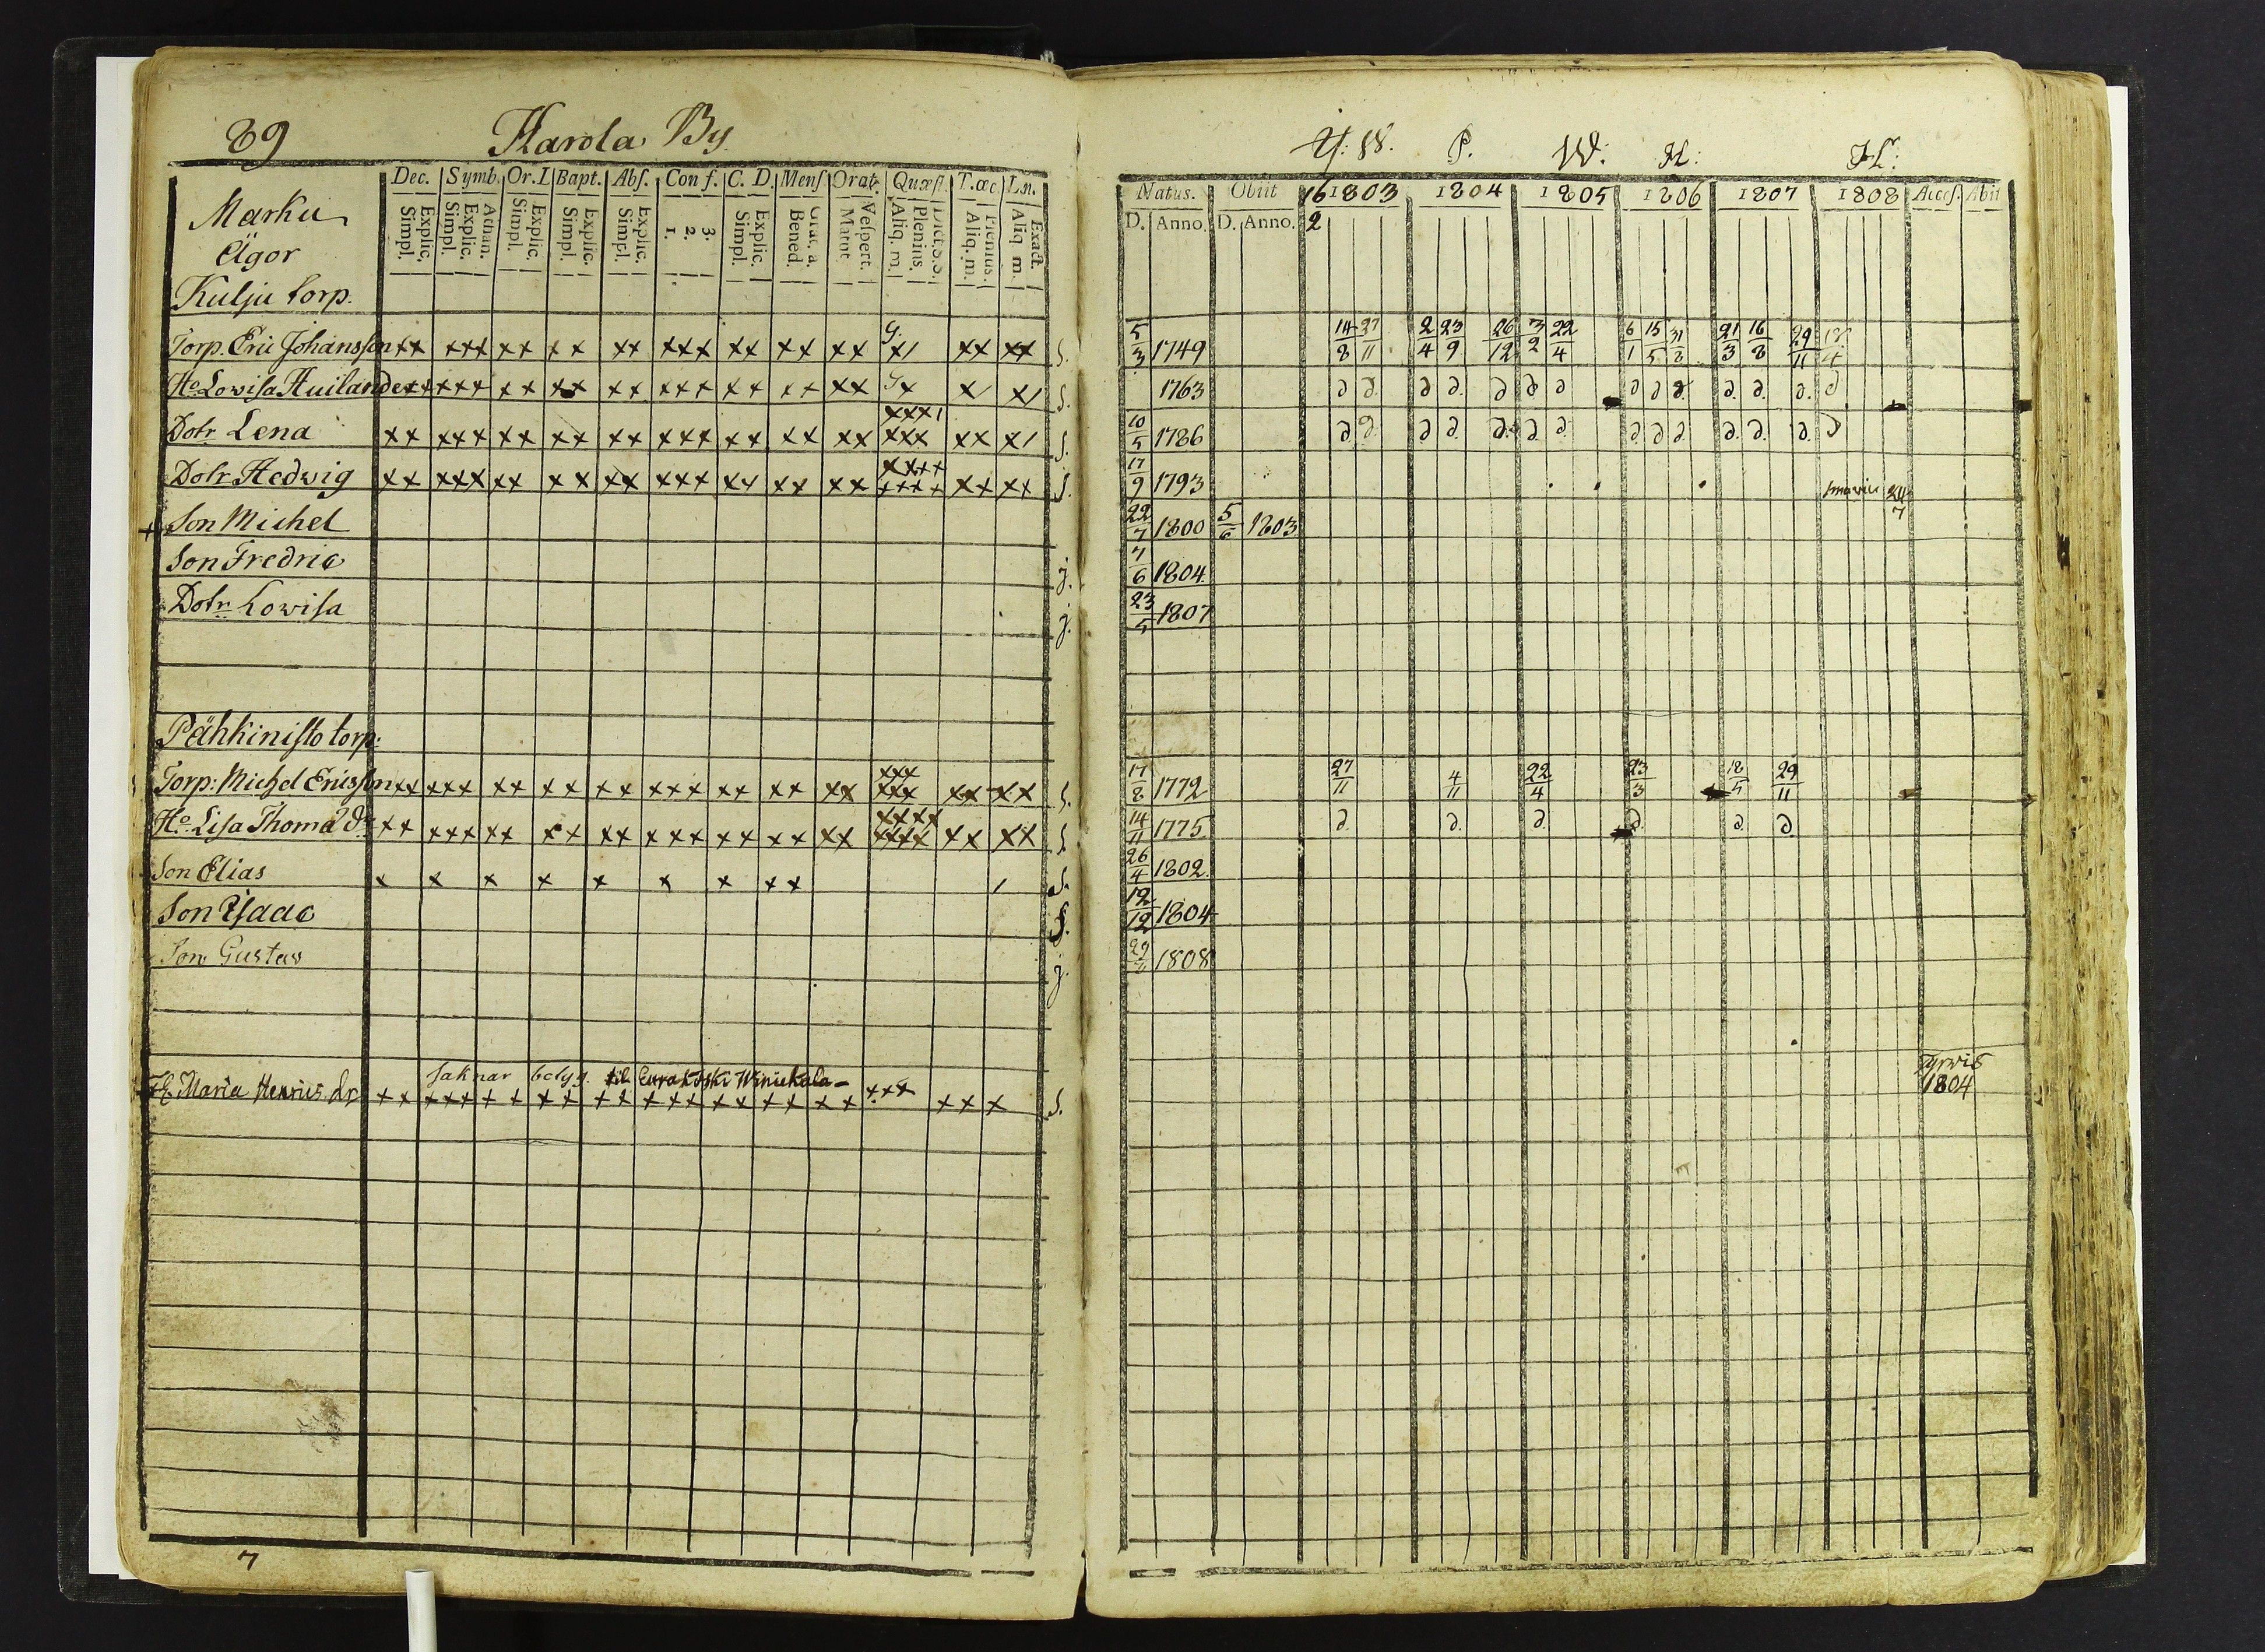 89 Harola By
Dec. Symb. Or.D. Bapt. Abſ. Conf. C. D. Menſ. Orat. Quæſt. T.œc. Ln.
Explic. Simpl. Athan. Explic. Simpl. Explic. Simpl. Explic. Simpl. Explic. Simpl. 3. 2. 1. Explic. Simpl. Grat. a. Bened. Veſpert. Matut. Dict.S.S. Plenius. Aliq. m. Plenius. Aliq. m. Exact. Aliq. m.
Marku
Ägor
Kulju torp.
Torp. Eric Johansson xx xxx xx xx xx xxx xx xx xx g. x/ xx xx S.
Ho Lowisa Huilander xx xxx xx xx xx xxx xx xx xx x x x/ S.
Dotr Lena xx xxx xx xx xx xxx xx xx xx xxx/ xxx xx x/ S.
Dotr Hedwig xx xxx xx xx xx xxx xx xx xx xxxx xxxx xx xx S.
+ Son Michel
Son Fredric j.
Dotr Lowisa j.
Pähkinisto torp:
Torp: Michel Ericsson xx xxx xx xx xx xxx xx xx xx xxx xxx xx xx S.
Ho Lisa Thomæ dr xx xxx xx xx xx xxx xx xx xx xxxx xxxx xx xx S
Son Elias x x x x x x x xx / S.
Son Isaac S.
Son Gustav j.
saknar betyg. til Euraåminne
Maria Henrics dr xx xxx xx xx xx xxx xx xx xx xxx xx x S.
7
P. W: H:
Natus. Obiit 1803 1804 1805 1806 1807 1808 Acceſ. Abiit
D. Anno. D. Anno.
5/3 1749 14/8 27/11 2/4 23/9 26/12 3/2 22/4 6/1 15/5 31/8 21/3 16/8 29/11 18/4
1763 d d. d d. d d d d d d. d. d. d. d
10/5 1786 d. d. d d. d. d. d. d. d. d. d. d. d. d
17/9 1793
22/7 1800 5/6 1803
7/6 1804
23/5 1807
17/8 1772 27/11 4/11 22/4 23/3 18/5 29/11
14/11 1775 d. d. d. d. d. d.
26/4 1802
12/12 1804
1808
Tyrwis
1804